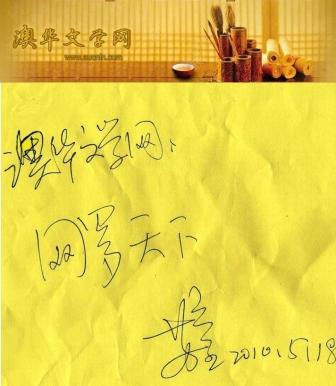 澳华文学网
澳华文学网：
网罗天下
2010.5.18